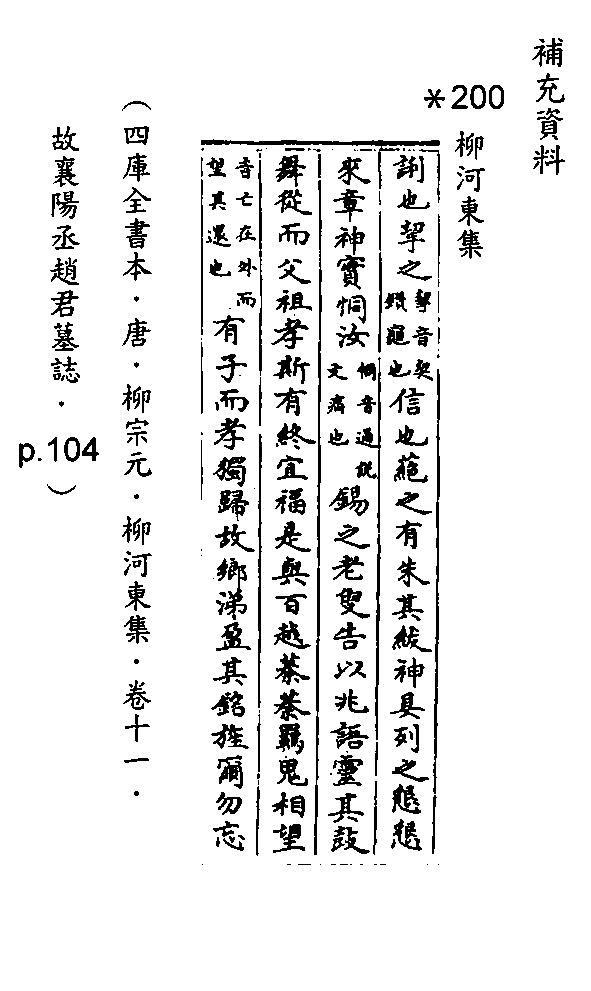 補充資料
*200
柳河東集
誗也挈之挈音契鑽龜也信也蕝之有朱其紱神具列之懇懇
來章神實恫汝恫音通說文痛也錫之老叟告以兆語靈其鼓
舞從而父祖孝斯有終宜福是與百越蓁蓁羈鬼相望
音亡在外而望其還也有子而孝獨歸故鄉涕盈其銘旌爾勿忘
（四庫全書本．唐．柳宗元．柳河東集．卷十一．
故襄陽丞趙君墓誌．p.104）